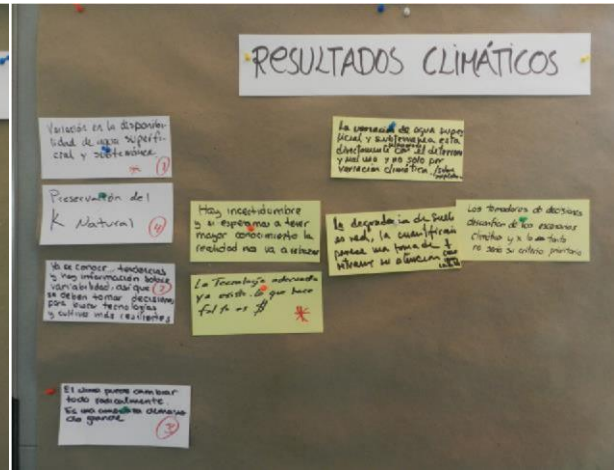 RESULTADOS CLIMÁTICOS
Variación en la disponibi-
lidad de agua superfi-
cial y subterránea.
Preservación del
K Natural
4
Ya se conocen tendencias
y hay información sobre
variabilidad, así que
se deben tomar decisiones
para buscar tecnologías
y cultivos más resilientes
El clima puede cambiar
todo radicalmente.
Es una amenaza demasia
do grande
3
Hay incertidumbre
y si esperamos a tener
mayor conocimiento la
realidad nos va a rebasar
La Tecnología adecuada
ya existe, lo que hace
falta es $
La variación de agua super
ficial y subterranea esta
directamente con el deterioro
y mal uso y no solo por
variación climática
La degradación de suelo
es real, la
Los tomadores de decisiones
desconfían de los escenarios
climáticos y x lo tanto
no será su criterio prioritario